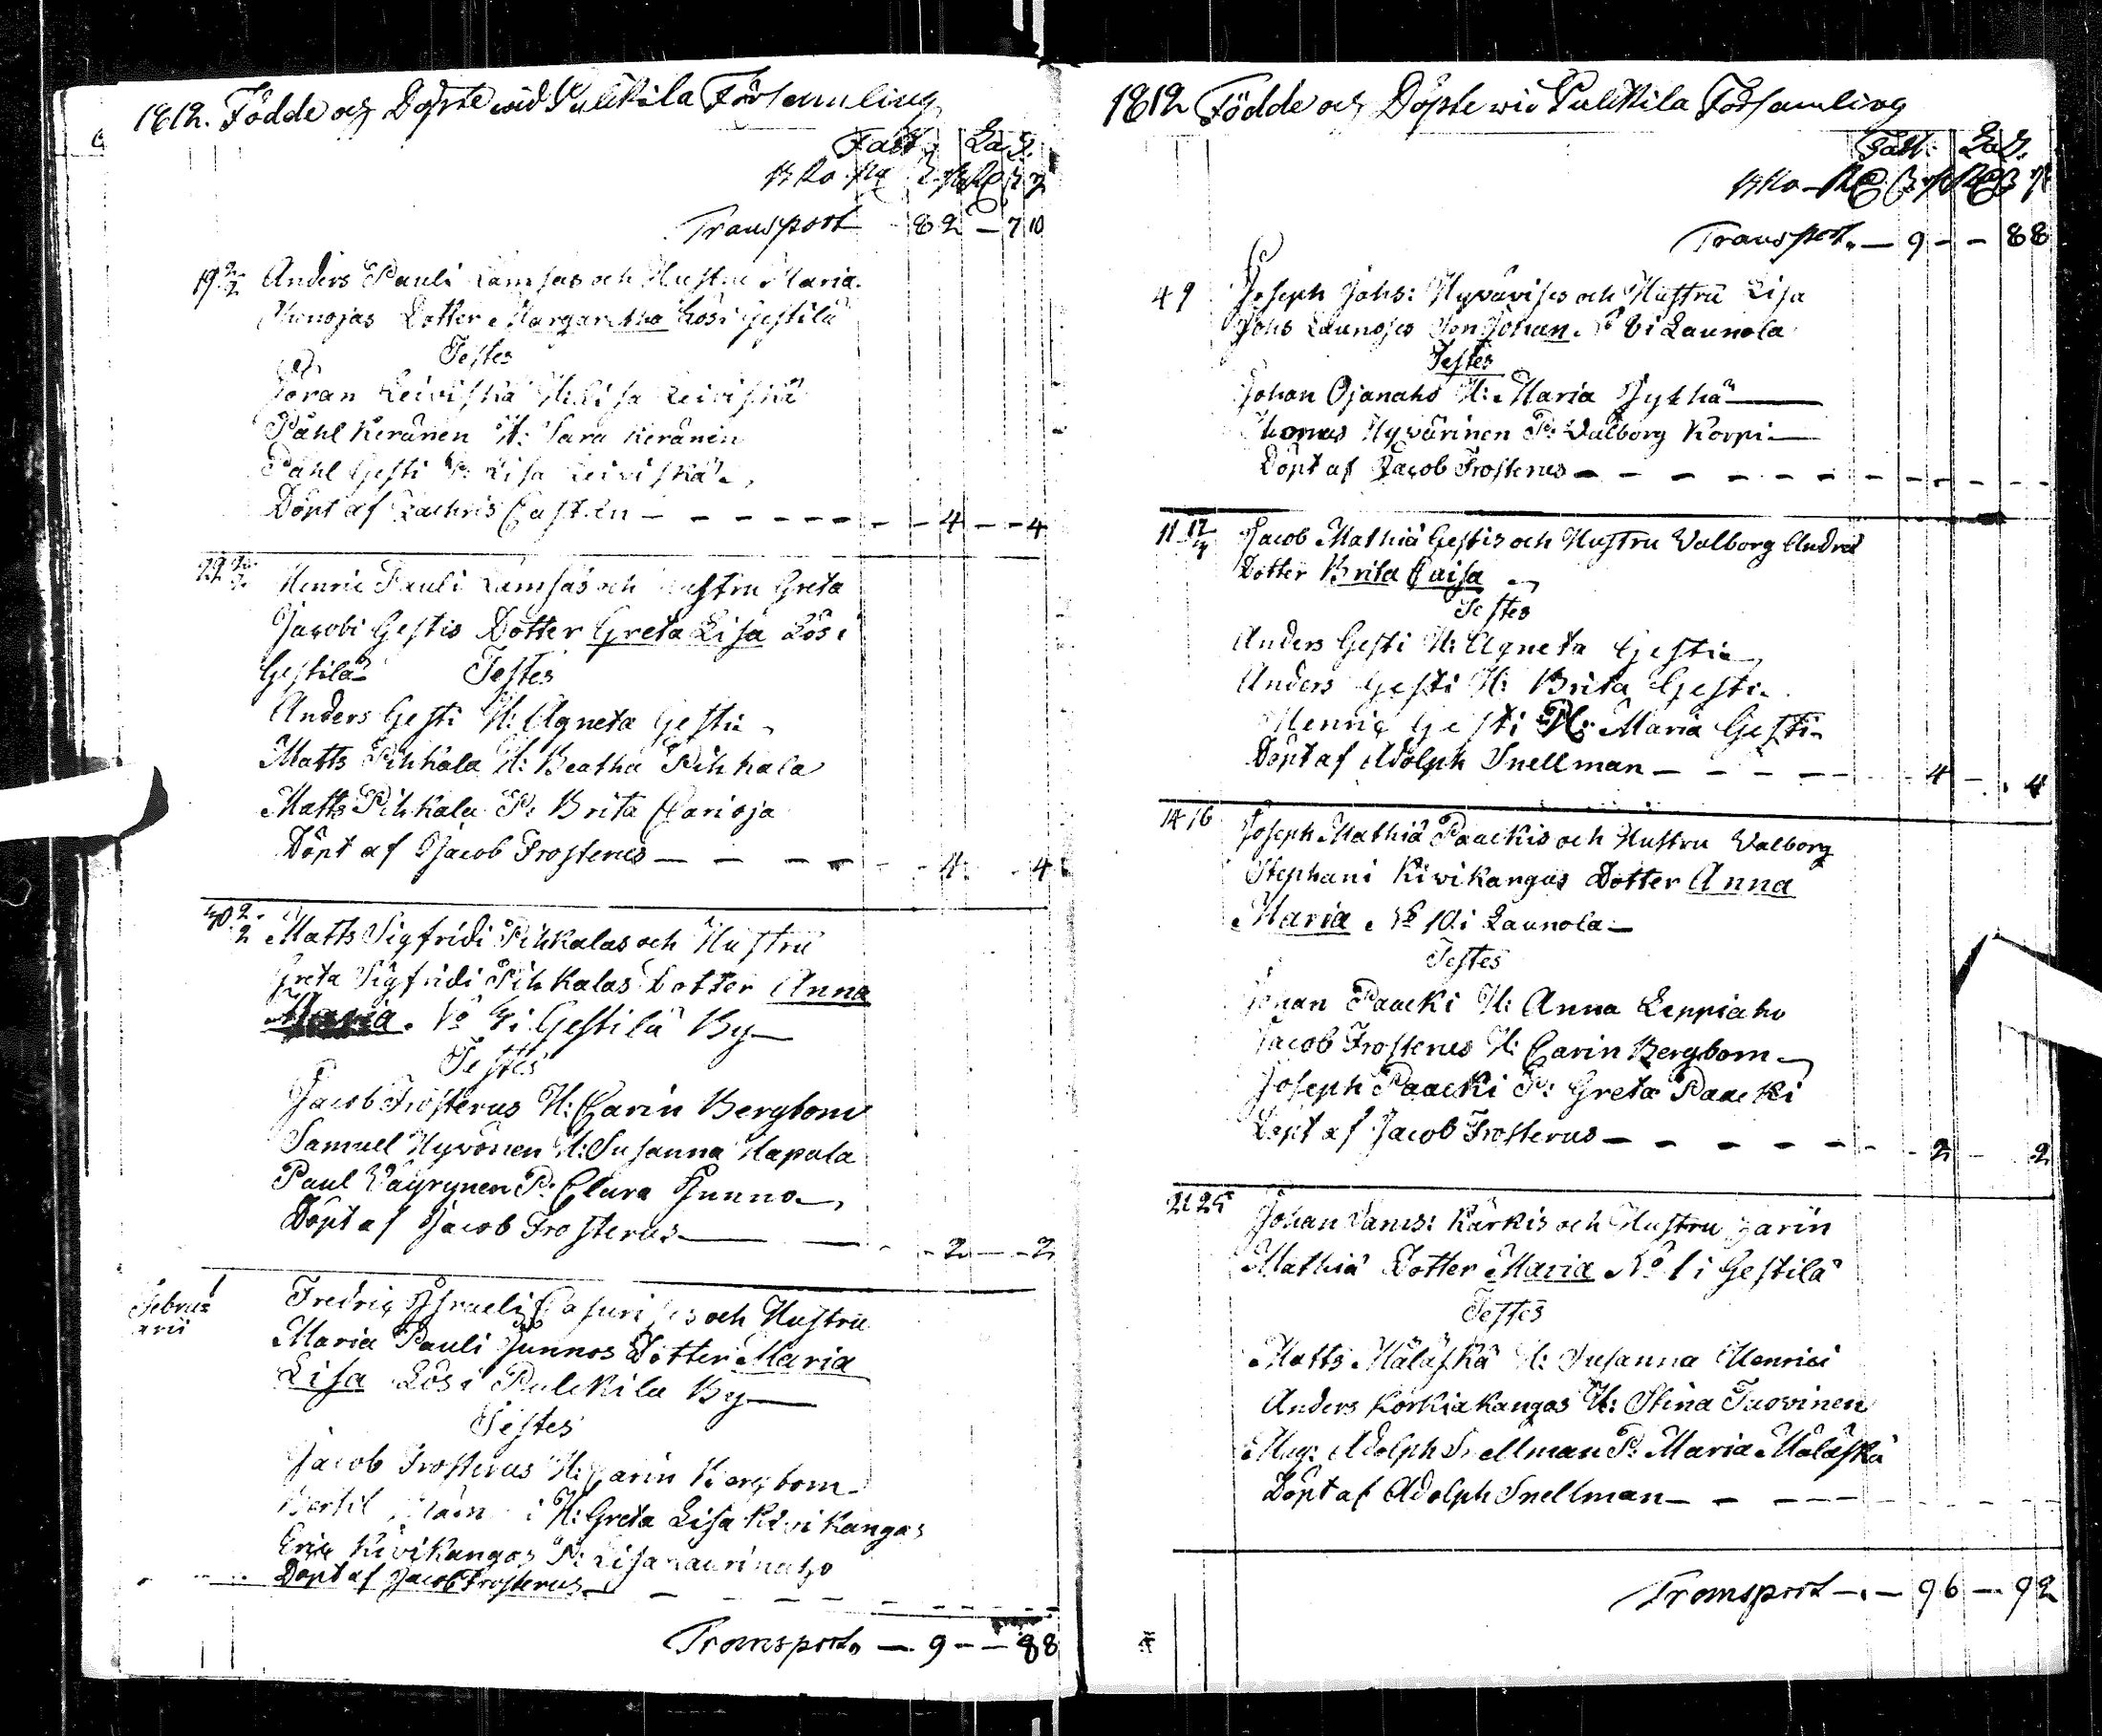 1812. Födde och Döpte wid Pulkkila Församling
Fatt. Läg.
Transport 8 2 - 7 10
19 2/2 Anders Pauli Lamsas och Hustru Maria
Dotter Margaretha Lös i Gestilä
Testes
Göran Leiviskä H: Lisa Leiviskä
Påhl Keränen H: Sara Keränen
Påhl Gesti P: Lisa Leiviskä
Döpt af Zachris Castrén - 4 - - 4
Henric Pauli Lamsas och Hustru Greta
Jacobi Gestis Dotter Greta Lisa Lös i
Gestilä Testes
Anders Gesti H: Agneta Gesti
Matts Pihkala H: Beatha Pihkala
Matts Pihkala P: Brita Carioja
Döpt af Jacob Frosterus - 4 - 4
30 2/2 Matts Sigfridi Pihkalas och Hustru
Greta Sigfridi Pihkalas Dotter Anna
Maria. No i Gestilä By
Testes
Jacob Frosterus H: Carin Bergbom
Samuel Hyvönen H: Susanna Hapala
Paul Väyrynen P: Clara Junno
Döpt af Jacob Frosterus - 2 - - 2
Februarii
Fredric Israeli och Hustru
Maria Pauli Junnos Dotter Maria
Lisa Lös i Pulckila By
Testes
Jacob Frosterus H: Carin Bergbom
Bertil H: Greta Lisa Kivikangas
Eric Kivikangas P: Lisa Laurinaho
Döpt af Jacob Frosterus
Transport - 9 - - 8 8
1812 Födde och Döpte wid Pulkkila Församling
Fatt: Läg.
Transport. - 9 - - 8 8
4 9 Joseph Johs: och Hustru Lisa
Johs Launojes Son Johan. No i Launola
Testes
Johan Ojanaho H: Maria Jylhä
Thomas Hyvärinen P: Valborg Korpi
Döpt af Jacob Frosterus
11 Jacob Mathiä Gestis och Hustru Valborg Andreä
Dotter Brita Caisa
Testes
Anders Gesti H: Agneta Gesti
Anders Gesti H: Brita Gesti
Henric Gesti H: Maria Gesti
Döpt af Adolph Snellman - 4 - 4
14 16 Joseph Mathiä Paackis och Hustru Valborg
Stephani Kivikangas Dotter Anna
Maria No 10 i Launola
Testes
Johan Paacki H: Anna Leppiaho
Jacob Frosterus H: Carin Bergbom
Joseph Paacki P: Greta Paacki
Döpt af Jacob Frosterus - 2 - 2
21 25 Johan Kärkis och Hustru Carin
Mathiä Dotter Maria No 1 i Gestilä
Testes
Matts Mäläskä H: Susanna Henrici
Anders Korkiakangas H: Stina Tuovinen
Mag: Adolph Snellman P: Maria Mäläskä
Döpt af Adolph Snellman
Transport - 9 6 - 9 2